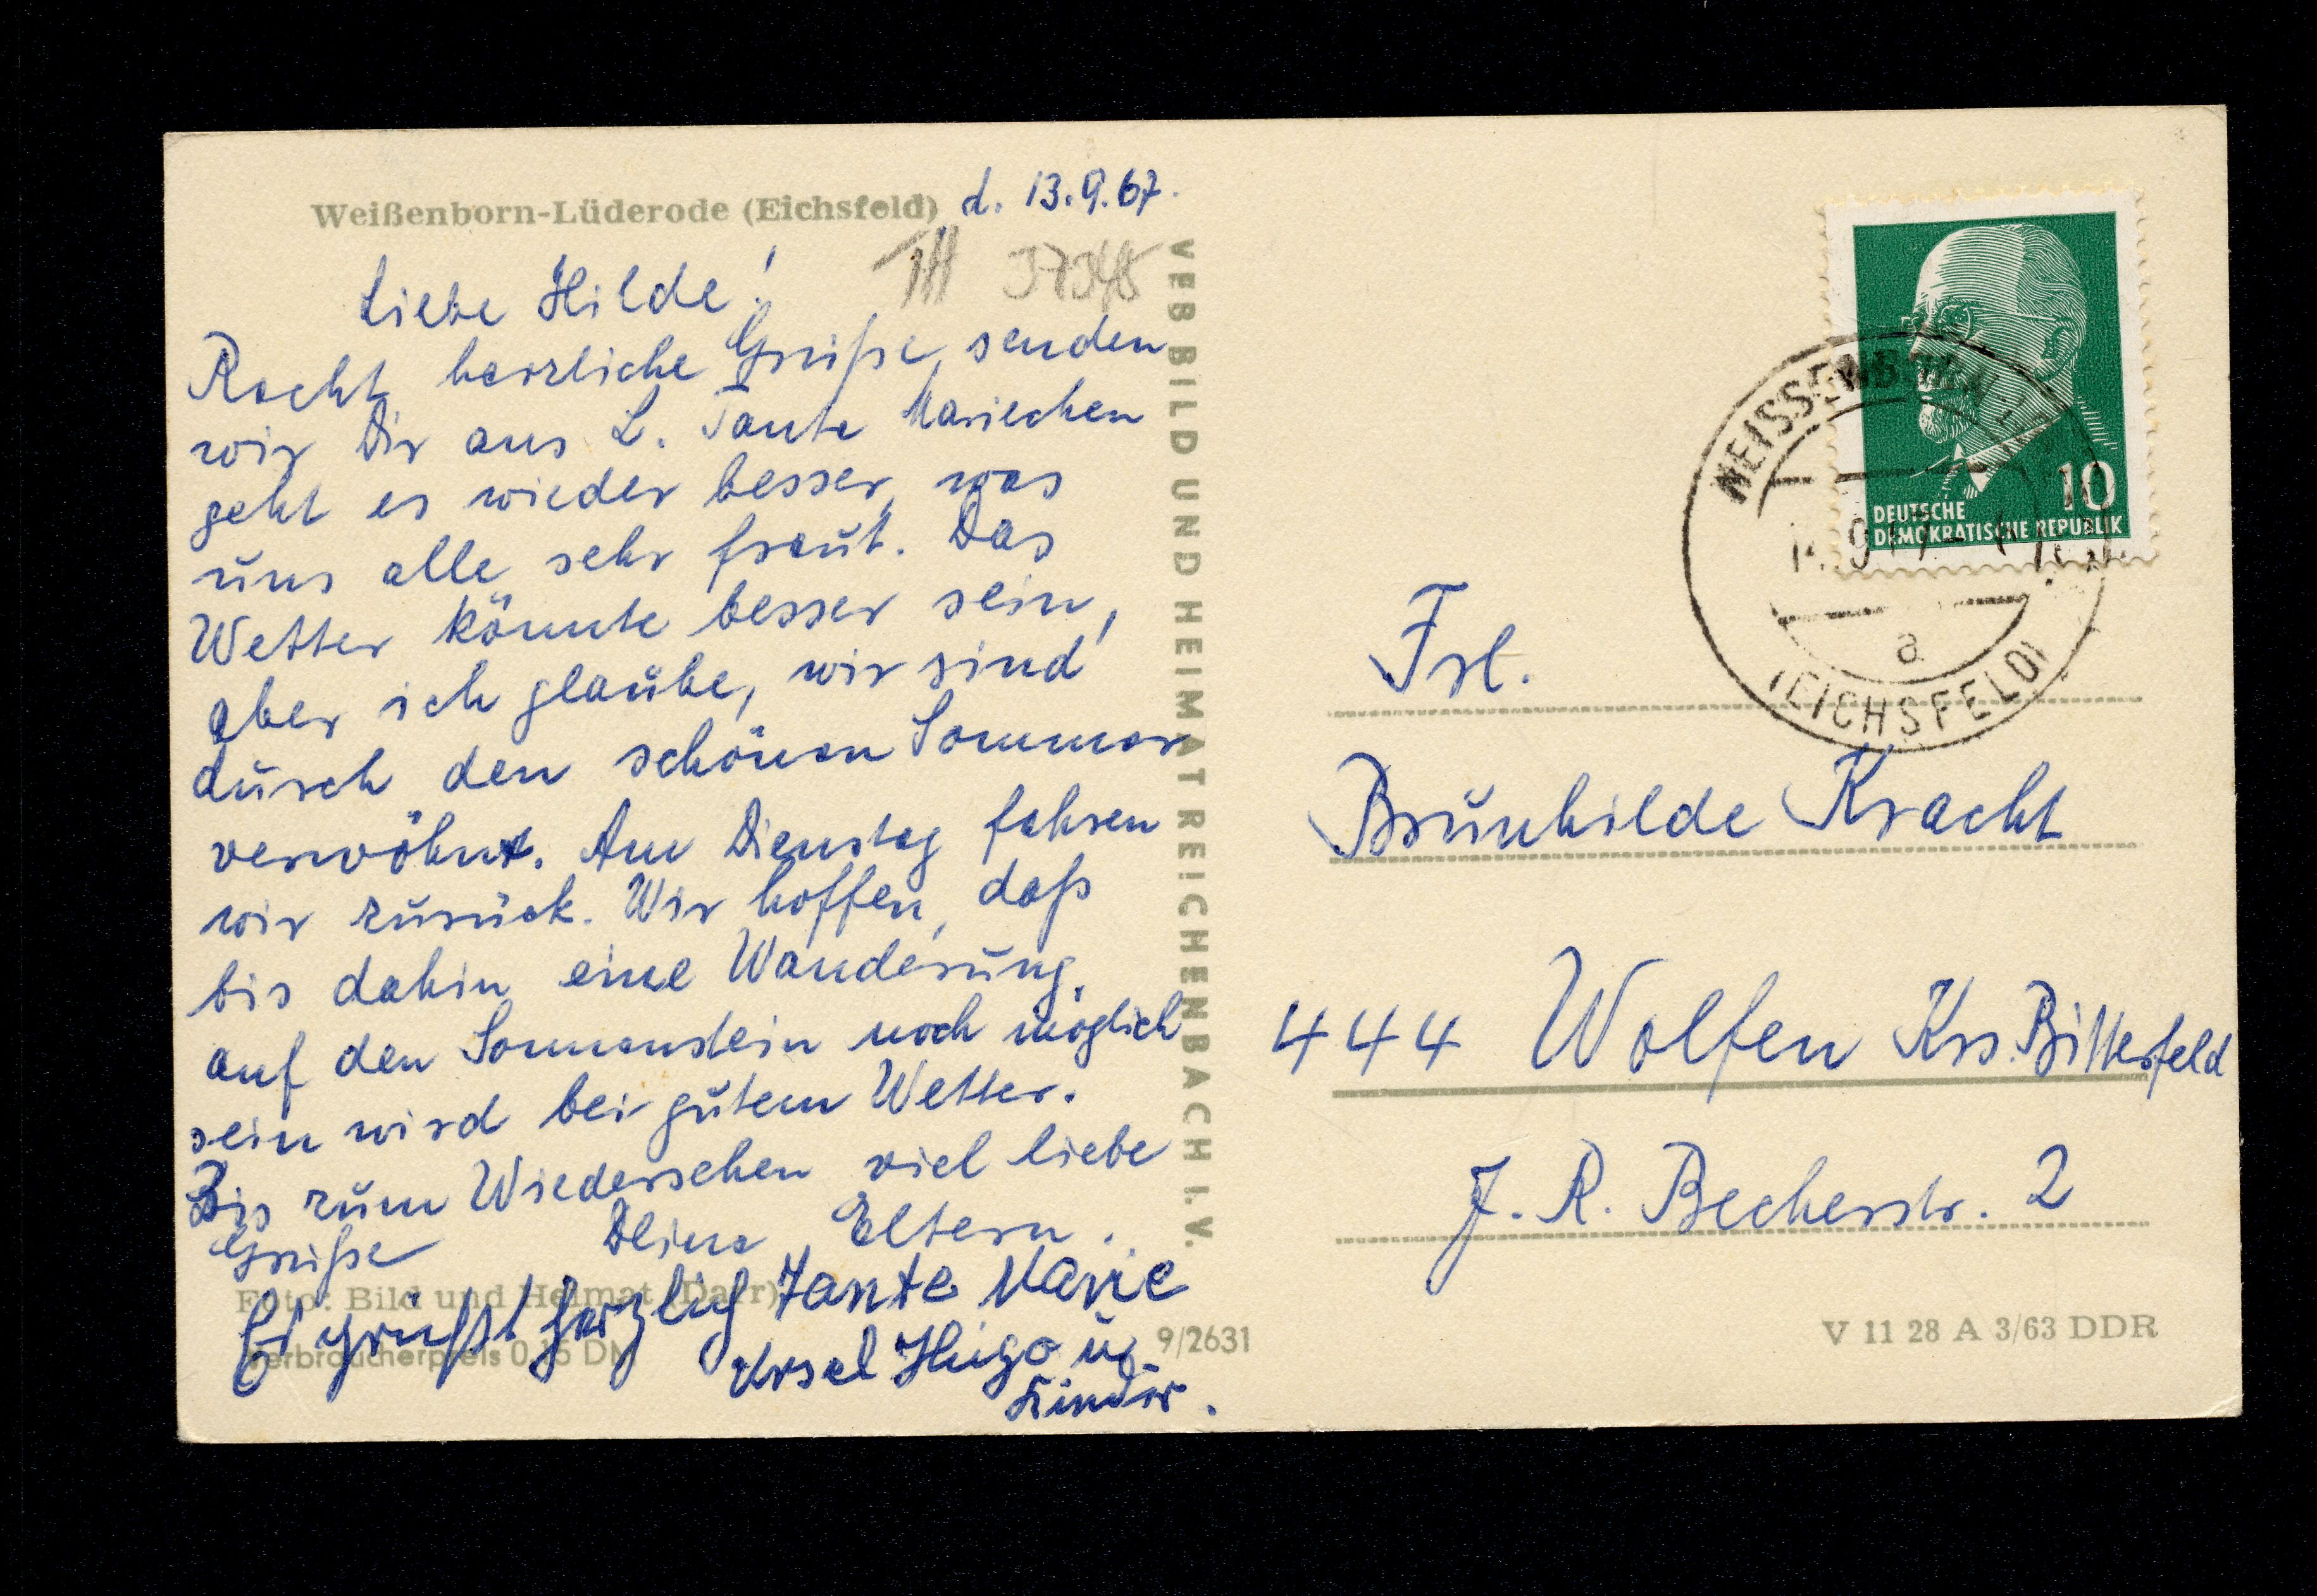 Weißenborn-Lüderode (Eichsfeld) d. 13.9.67.
Liebe Hilde!
Recht herzliche Grüße senden
wir Dir aus L. Tante Mariechen
geht es wieder besser, was
uns alle sehr freut. Das
Wetter könnte besser sein,
aber ich glaube, wir sind
durch den schönen Sommer
verwöhnt. Am Dienstag fahren
wir zurück. Wir hoffen, daß
bis dahin eine Wanderung
auf den Sonnenstein noch möglich
sein wird bei gutem Wetter.
Bis zum Wiedersehen viel liebe
Grüße Deine Eltern.
Es grüßt herzlich Tante Marie
Ursel Hugo u.
Kinder.
Foto: Bild und Heimat (Darr)
Verbraucherpreis 0,15 DM
9/2631
VEB BILD UND HEIMAT REICHENBACH I. V.
10
DEUTSCHE
DEMOKRATISCHE REPUBLIK
WEISSENBORN-
a
(EICHSFELD)
Frl.
Brunhilde Kracht
444 Wolfen Krs. Bitterfeld
J. R. Becherstr. 2
V 11 28 A 3/63 DDR